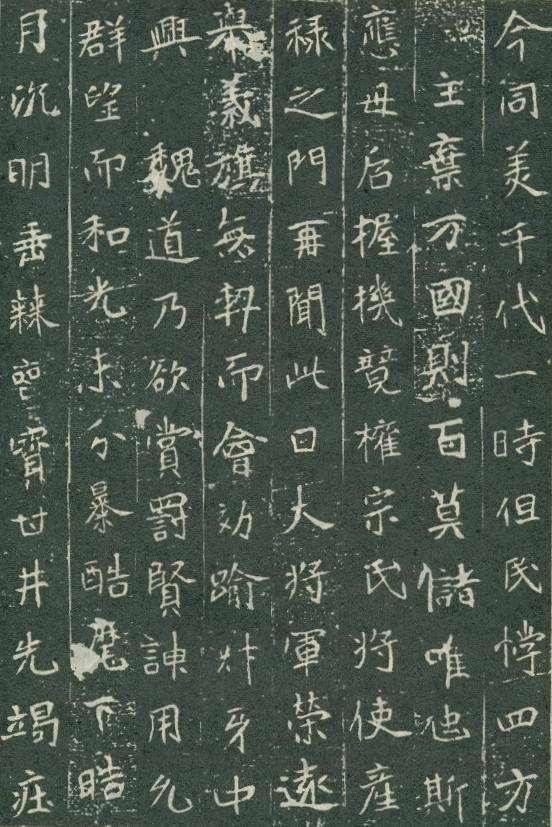 今同美千代一時但民悖四方
主棄万國則百莫儲唯斯
應母后握機競權宗氏将使産
禄之門再聞此日大将軍榮遠
舉義旗無而會効踰牙中
興魏道乃欲賞罰賢用允
群望而和光未分暴酷麾下晧
月沉明垂棘喪寶甘井先竭